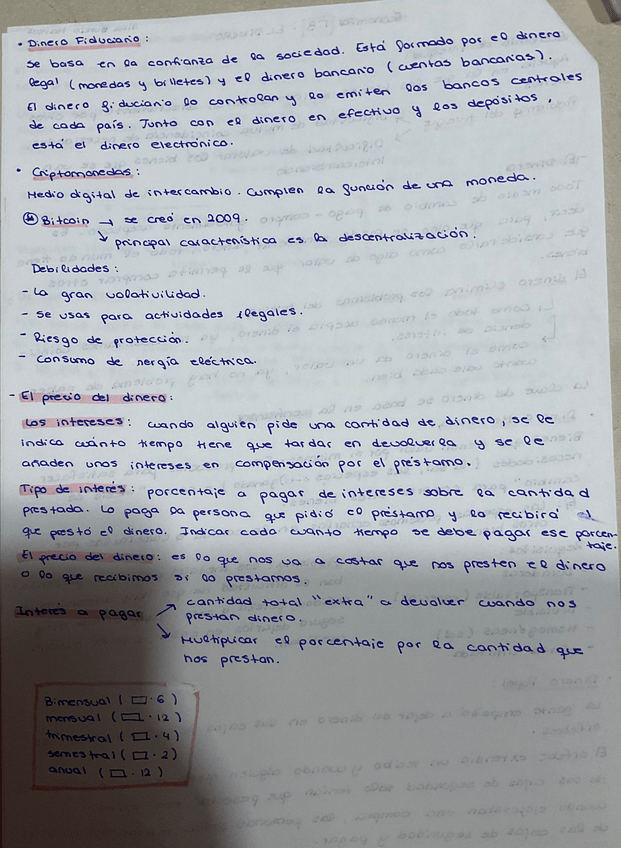 • Dinero Fiduciario:
se basa en la confianza de la sociedad. Está formado por el dinero
legal (monedas y billetes) y el dinero bancario (cuentas bancarias).
El dinero fiduciario lo controlan y lo emiten los bancos centrales
de cada país. Junto con el dinero en efectivo y los depósitos,
está el dinero electrónico.
• Criptomonedas:
Medio digital de intercambio. Cumplen la función de una moneda.
Bitcoin → se creó en 2009.
↘ principal característica es la descentralización.
Debilidades:
- La gran volativilidad.
- Se usas para actividades ilegales.
- Riesgo de protección.
- Consumo de nergía eléctrica.
- El precio del dinero:
Los intereses: cuando alguien pide una cantidad de dinero, se le
indica cuánto tiempo tiene que tardar en devolverla y se le
añaden unos intereses en compensación por el préstamo.
Tipo de interés: porcentaje a pagar de intereses sobre la cantidad
prestada. Lo paga la persona que pidió el préstamo y la recibirá el
que prestó el dinero. Indicar cada cuanto tiempo se debe pagar ese porcen-
taje.
El precio del dinero: es lo que nos va a costar que nos presten el dinero
o lo que recibimos si lo prestamos.
Interés a pagar ↗ cantidad total "extra" a devolver cuando nos
prestan dinero.
↘ Multiplicar el porcentaje por la cantidad que
nos prestan.
Bimensual (□ · 6)
mensual (□ · 12)
trimestral (□ · 4)
semestral (□ · 2)
anual (□ · 12)